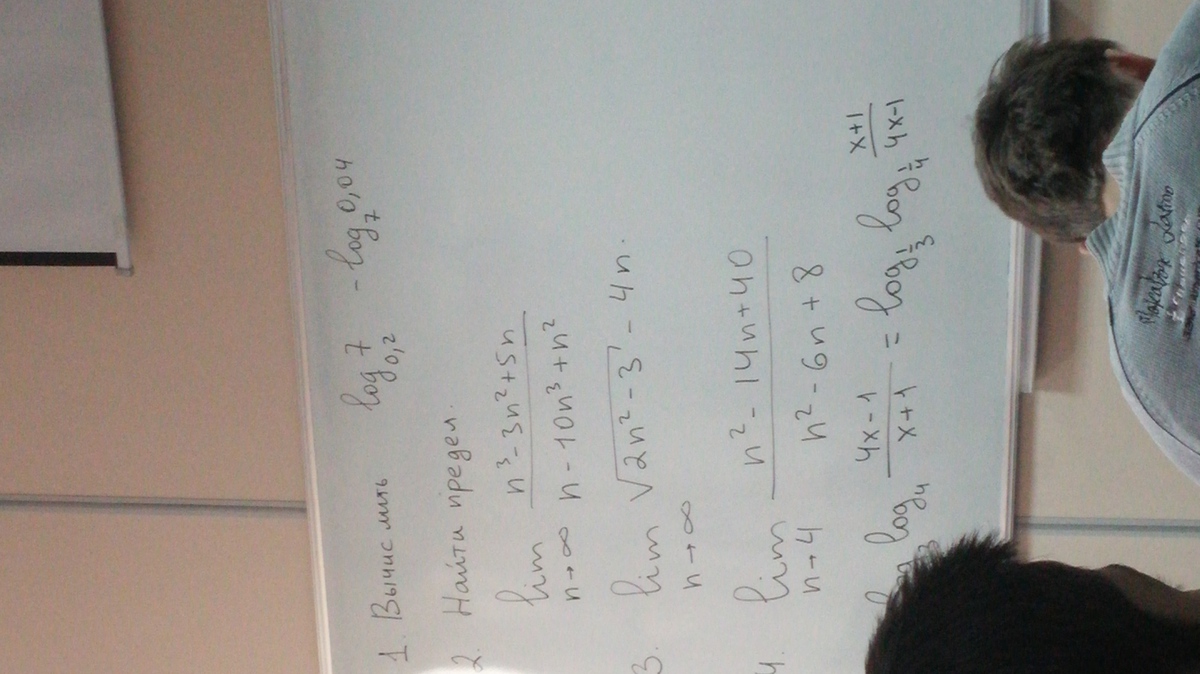 1. Вычислить log₀,₂ 7 - log₇ 0,04
2. Найти предел.
lim n→∞ (n³ - 3n² + 5n)/(n - 10n³ + n²)
3. lim n→∞ √(2n² - 3) - 4n.
4. lim n→4 (n² - 14n + 40)/(n² - 6n + 8)
log₄ (4x - 1)/(x + 1) = log_(1/3) log_(1/4) (x+1)/(4x-1)